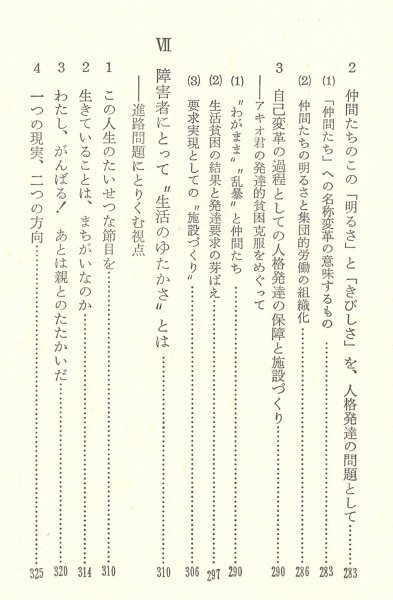 2 仲間たちのこの「明るさ」と「きびしさ」を、人格発達の問題として……283
(1) 「仲間たち」への名称変革の意味するもの……283
(2) 仲間たちの明るさと集団的労働の組織化……286
3 自己変革の過程としての人格発達の保障と施設づくり……290
――アキオ君の発達的貧困克服をめぐって
(1) 〝わがまま〟〝乱暴〟と仲間たち……290
(2) 生活貧困の結果と発達要求の芽ばえ……297
(3) 要求実現としての〝施設づくり〟……306
Ⅶ 障害者にとって〝生活のゆたかさ〟とは……310
――進路問題にとりくむ視点
1 この人生のたいせつな節目を……310
2 生きていることは、まちがいなのか……314
3 わたし、がんばる! あとは親とのたたかいだ……320
4 一つの現実、二つの方向……325